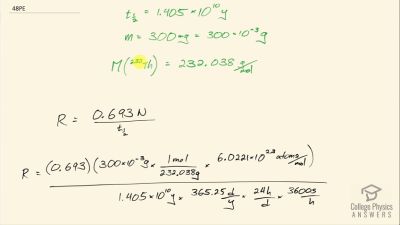 48PE
t½ = 1.405 × 10¹⁰ y
m = 300 mg = 300 × 10⁻³ g
M(²³²Th) = 232.038 g/mol
R = 0.693 N / t½
R = (0.693)(300×10⁻³g × 1 mol/232.038g × 6.0221×10²³ atoms/mol)
1.405 × 10¹⁰ y × 365.25 d/y × 24h/d × 3600s/h
College Physics
ANSWERS